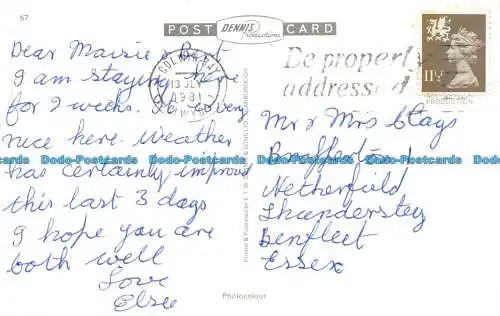 67
POST DENNIS Productions CARD
Dear Maisie & Bert
I am staying here
for 2 weeks. Its very
nice here. Weather
has certainly improved
this last 3 days
I hope you are
both well
Love
Elsie
COLWYN BAY
13 JLY
1981
CLWYD
Be properly
addressed
11½
Mr & Mrs Clays
Netherfield
Thundersley
Benfleet
Essex
Printed & Published by E.T.W. DENNIS & SONS LTD. SCARBOROUGH
PRODUCTION
Photocolour
Dodo-Postcards Dodo-Postcards Dodo-Postcards Dodo-Postcards